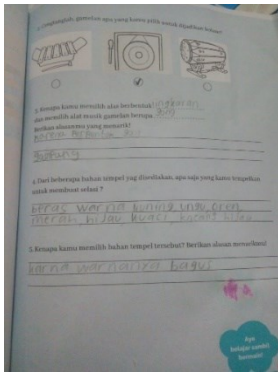 gamelan apa yang kamu pilih untuk dijadikan kolase?
3. Kenapa kamu memilih alas berbentuk lingkaran
dan memilih alat musik gamelan berupa gong
Berikan alasanmu yang menarik!
karna
gampang
4. Dari beberapa bahan tempel yag disediakan, apa saja yang kamu tempelkan
untuk membuat kolase ?
beras warna kuning, ungu, oren
merah, hijau kuaci, kacang hijau
5. Kenapa kamu memilih bahan tempel tersebut? Berikan alasan menarikmu!
karna warnanya bagus
Ayo
belajar sambil
bermain!